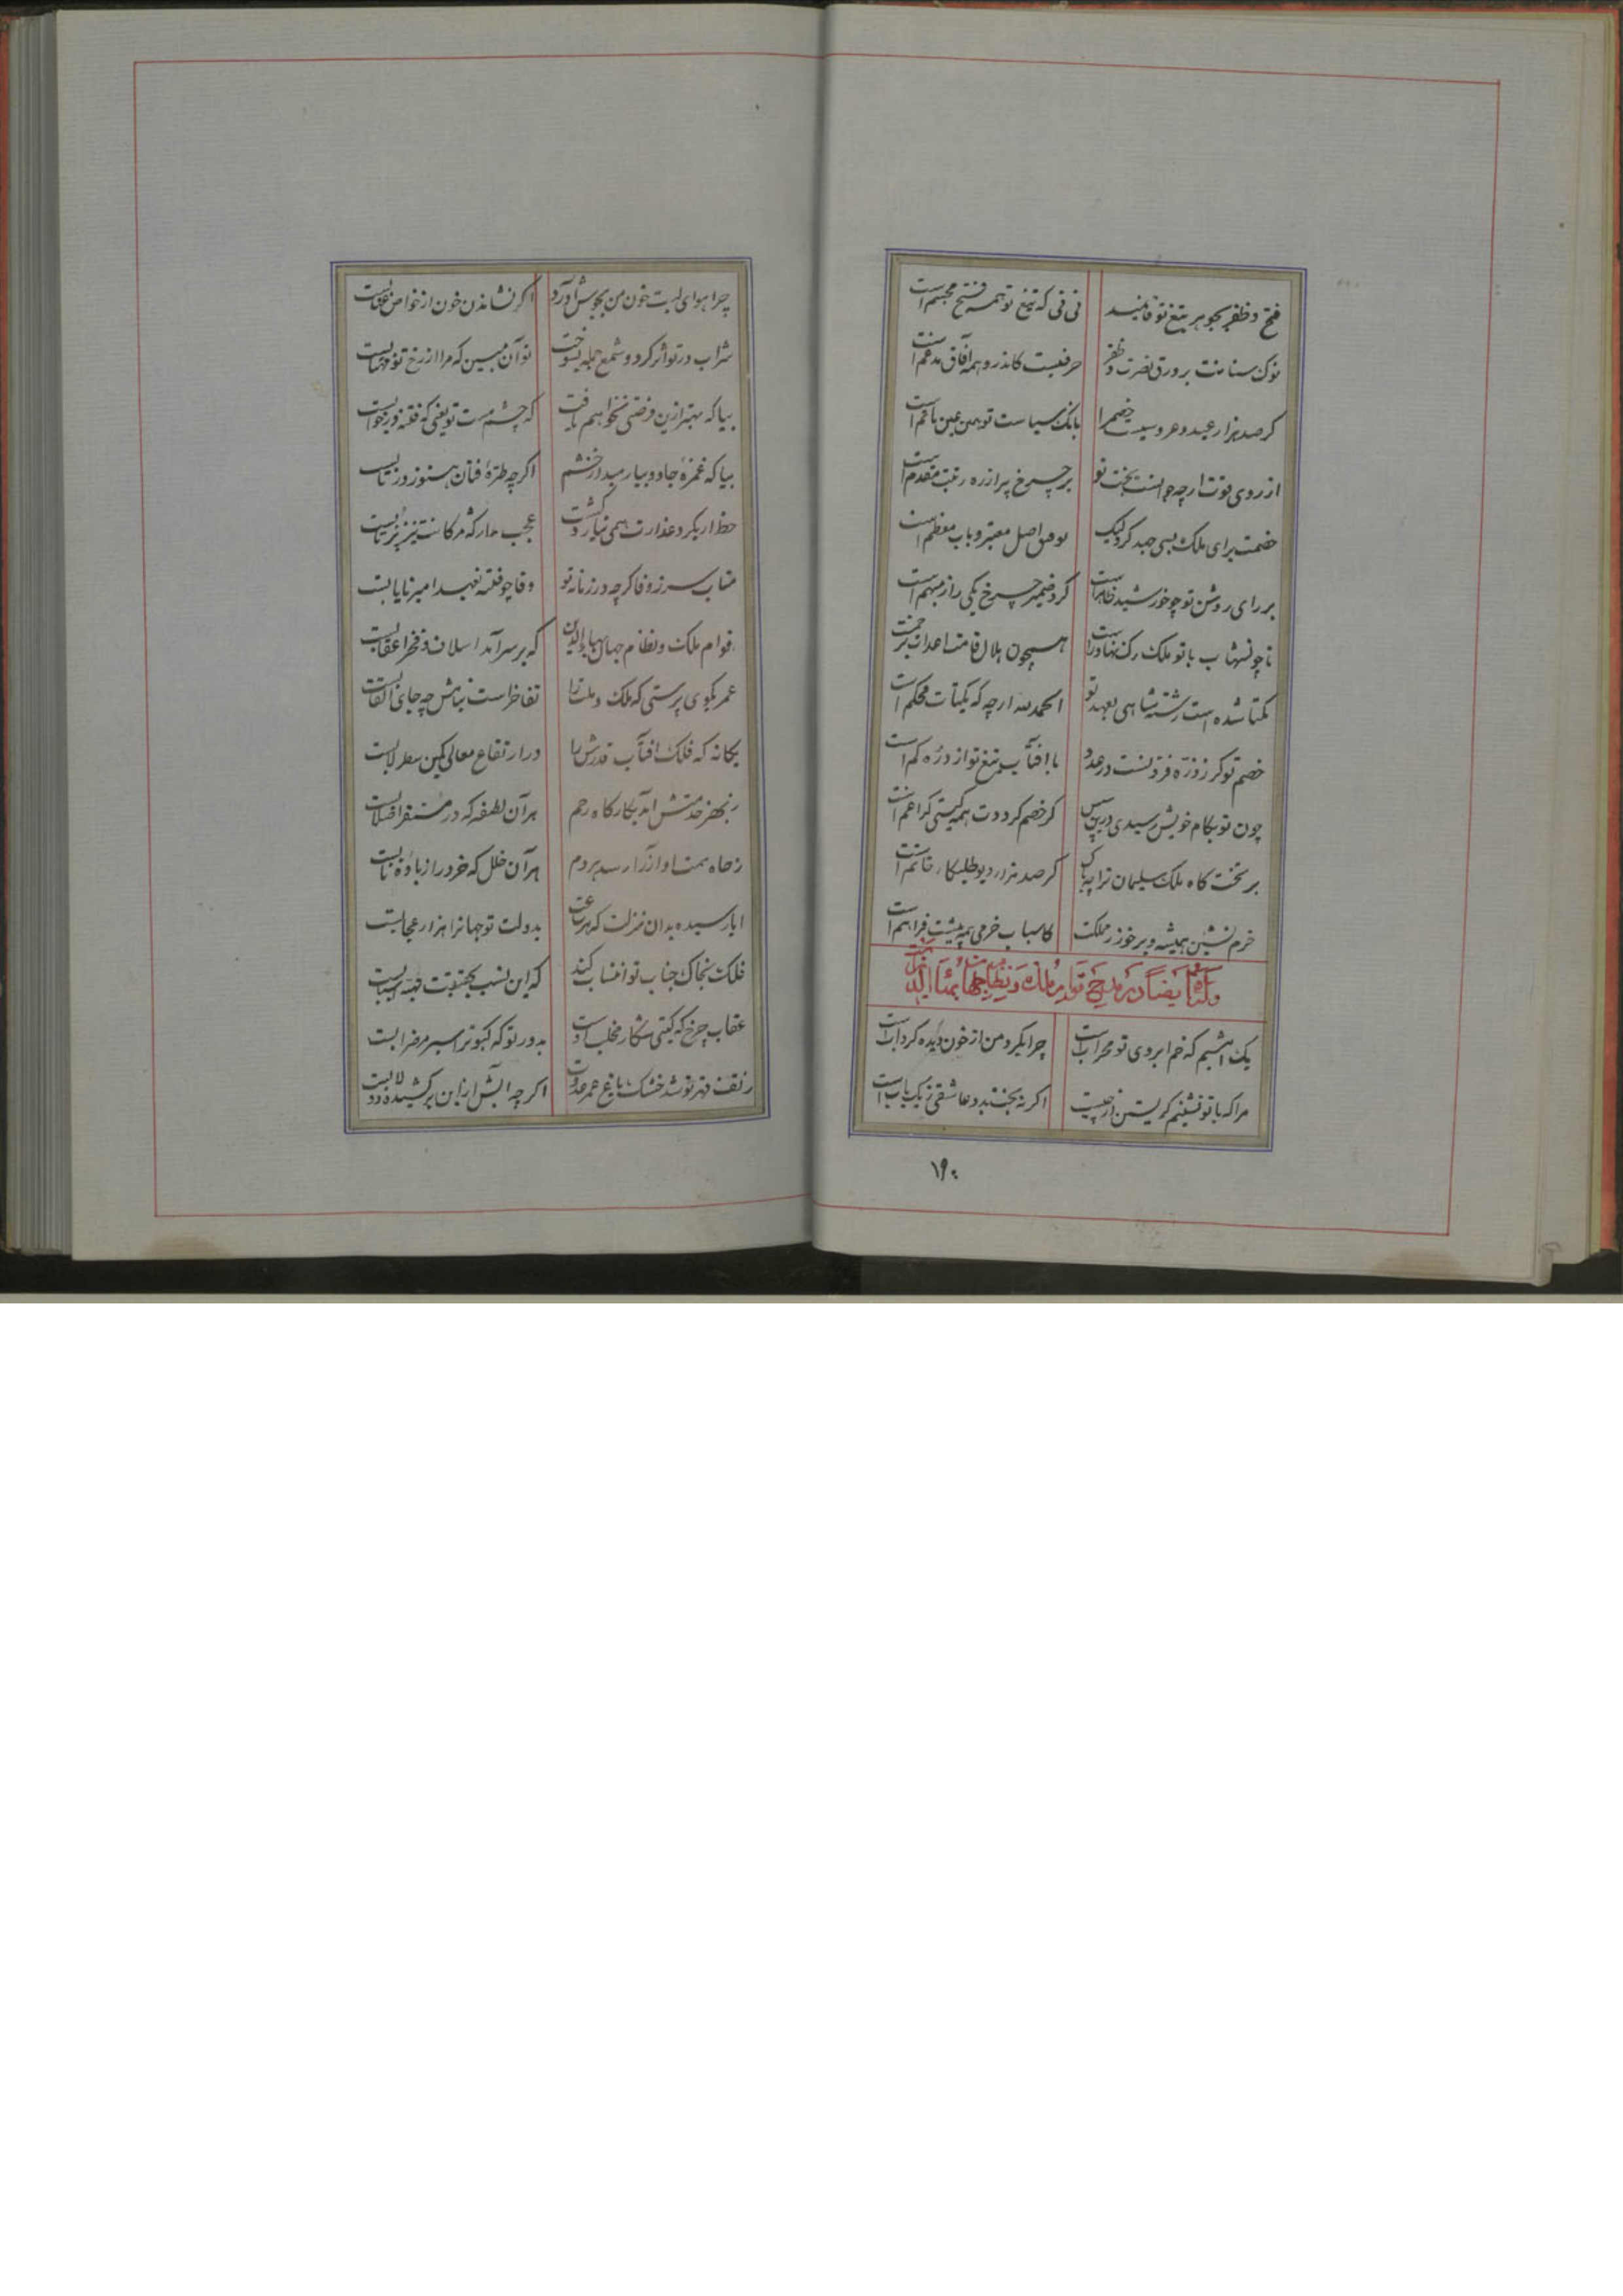 فتح و ظفر بجوهر تیغ تو قایمند نی نی که تیغ تو همه فتح مجسم است
نوک سنانت بر ورق نصرت و ظفر حرفیست کاندرو همه آفاق مدغم است
کر صد هزار عید و عروسیست خصم را بانک سیاست تو همین عین ماتم است
از روی قوت ارچه جوانست بخت تو بر چرخ پیر از ره رتبت مقدم است
خصمت برای ملک بسی جهد کرد لیک توفیق اصل معتبر و باب معظم است
بر رای روشن تو چو خورشید ظاهر است کر در ضمیر چرخ یکی راز مبهم است
تا چون شهاب با تو ملک رک نهاد راست همچون هلال قامت اعدات پر خمست
یکتا شده است رشته شاهی بعهد تو الحمد لله ارچه که یکتاست محکم است
خصم تو کر ز ذره فزونست در عدد با آفتاب تیغ تو از ذره کم است
چون تو بکام خویش رسیدی ازین سپس کر خصم کرددت همه کیتی کرا غم است
بر تخت کاه ملک سلیمان ترا چه باک کر صد هزار دیو طلبکار خاتم است
خرم نشین همیشه و بر خور ز مملکت کاسباب خرمی همه پیشت فراهم است
وله ایضا در مدح قوام ملک و نظام جهان بهاء الدین
یک آتشیم که خم ابروی تو محراب است چرا بکرد من از خون دیده کرداب است
مرا که با تو نشینم کریستن از چیست اکر نه بخت بد و عاشقی ز یک باب است
چرا هوای لبت خون من بجوش آورد اکر نشاندن خون از خواص عنابست
شراب در تو اثر کرد و شمع جمله بسوخت تو آن مبین که مرا از رخ تو مهتابست
بیا که بهتر ازین فرصتی نخواهم یافت که چشم مست تو یعنی که فتنه در خوابست
بیا که غمزه جادو بیارمید از خشم اکرچه طره فتان هنوز در تابست
خط ار بکرد عذارت همی نیارد کشت عجب مدار که مژکانت تیز پرتابست
متاب سر ز وفا کرچه در زمانه تو وفا چو فتنه بعهد امیر نایابست
قوام ملک و نظام جهان بهاء الدین که بر سر آمد اسلاف و فخر اعقابست
عمر بکوی پرستی که ملک و ملت را تفاخر است بنامش چه جای القابست
یکانه که فلک آفتاب قدرش را در ارتفاع معالی کمین سطرلابست
ز بهر خدمتش آمد بکارکاه رحم هر آن نطفه که در مستقر اصلابست
ز جاه همت او آز را رسد بر دم هر آن خلل که خرد را ز باده نابست
ایا رسیده بدان منزلت که هر ساعت بدولت تو جهانرا هزار اعجابست
فلک بخاک جناب تو انتساب کند که این نسب بحقیقت به انسابست
عقاب چرخ که کیتی شکار مخلب اوست بدور تو که کبوتر اسیر مضرابست
ز تف قهر تو شد خشک باغ عمر عدوت اکرچه آتش ازان برکشیده دولابست
۱۹۰